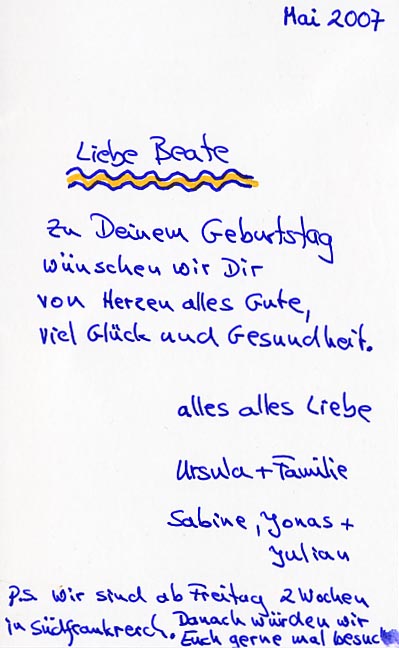 Mai 2007
Liebe Beate
zu Deinem Geburtstag
wünschen wir Dir
von Herzen alles Gute,
viel Glück und Gesundheit.
alles alles Liebe
Ursula + Familie
Sabine, Jonas +
Julian
P.S. Wir sind ab Freitag 2 Wochen
in Südfrankreich. Danach würden wir
Euch gerne mal besuch